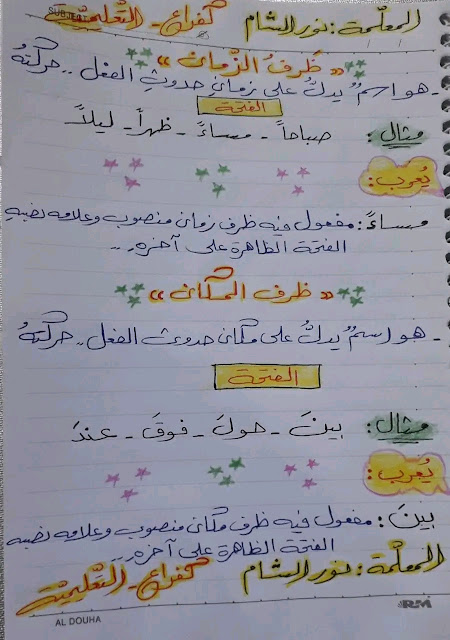 SUBJECT
المعلمة : نور الشام كفراع - التعليمية
« ظرفُ الزّمان »
- هو اسمٌ يدلُّ على زمانِ حدوثِ الفعل .. حركتهُ
الفتحة
مثال : صباحاً - مساءً - ظهراً - ليلاً
يُعرب :
مساءً : مفعول فيه ظرف زمان منصوب وعلامه نصبه
الفتحة الظاهرة على آخره ..
« ظرف المكان »
- هو اسمٌ يدلُّ على مكان حدوث الفعل .. حركتهُ
الفتحة
مثال : بينَ - حولَ - فوقَ - عندَ
يُعرب :
بينَ : مفعول فيه ظرف مكان منصوب وعلامه نصبه
الفتحة الظاهرة على آخره ..
المعلمة : نور الشام كفراع - التعليمية
AL DOUHA
RM